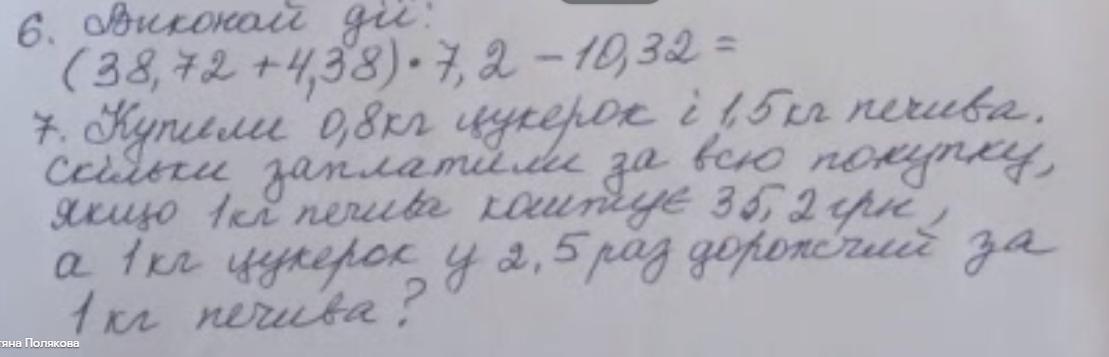 6. Виконай дії:
(38,72 + 4,38) · 7,2 - 10,32 =
7. Купили 0,8кг цукерок і 1,5 кг печива.
Скільки заплатили за всю покупку,
якщо 1кг печива коштує 35,2 грн,
а 1кг цукерок у 2,5 раз дорожчий за
1 кг печива?
тяна Полякова